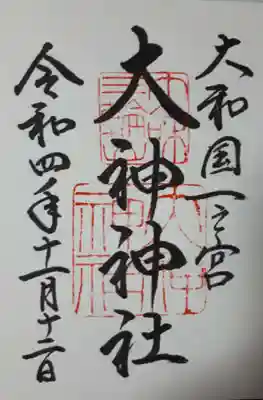 大和国一之宮
大神神社
令和四年十一月十二日